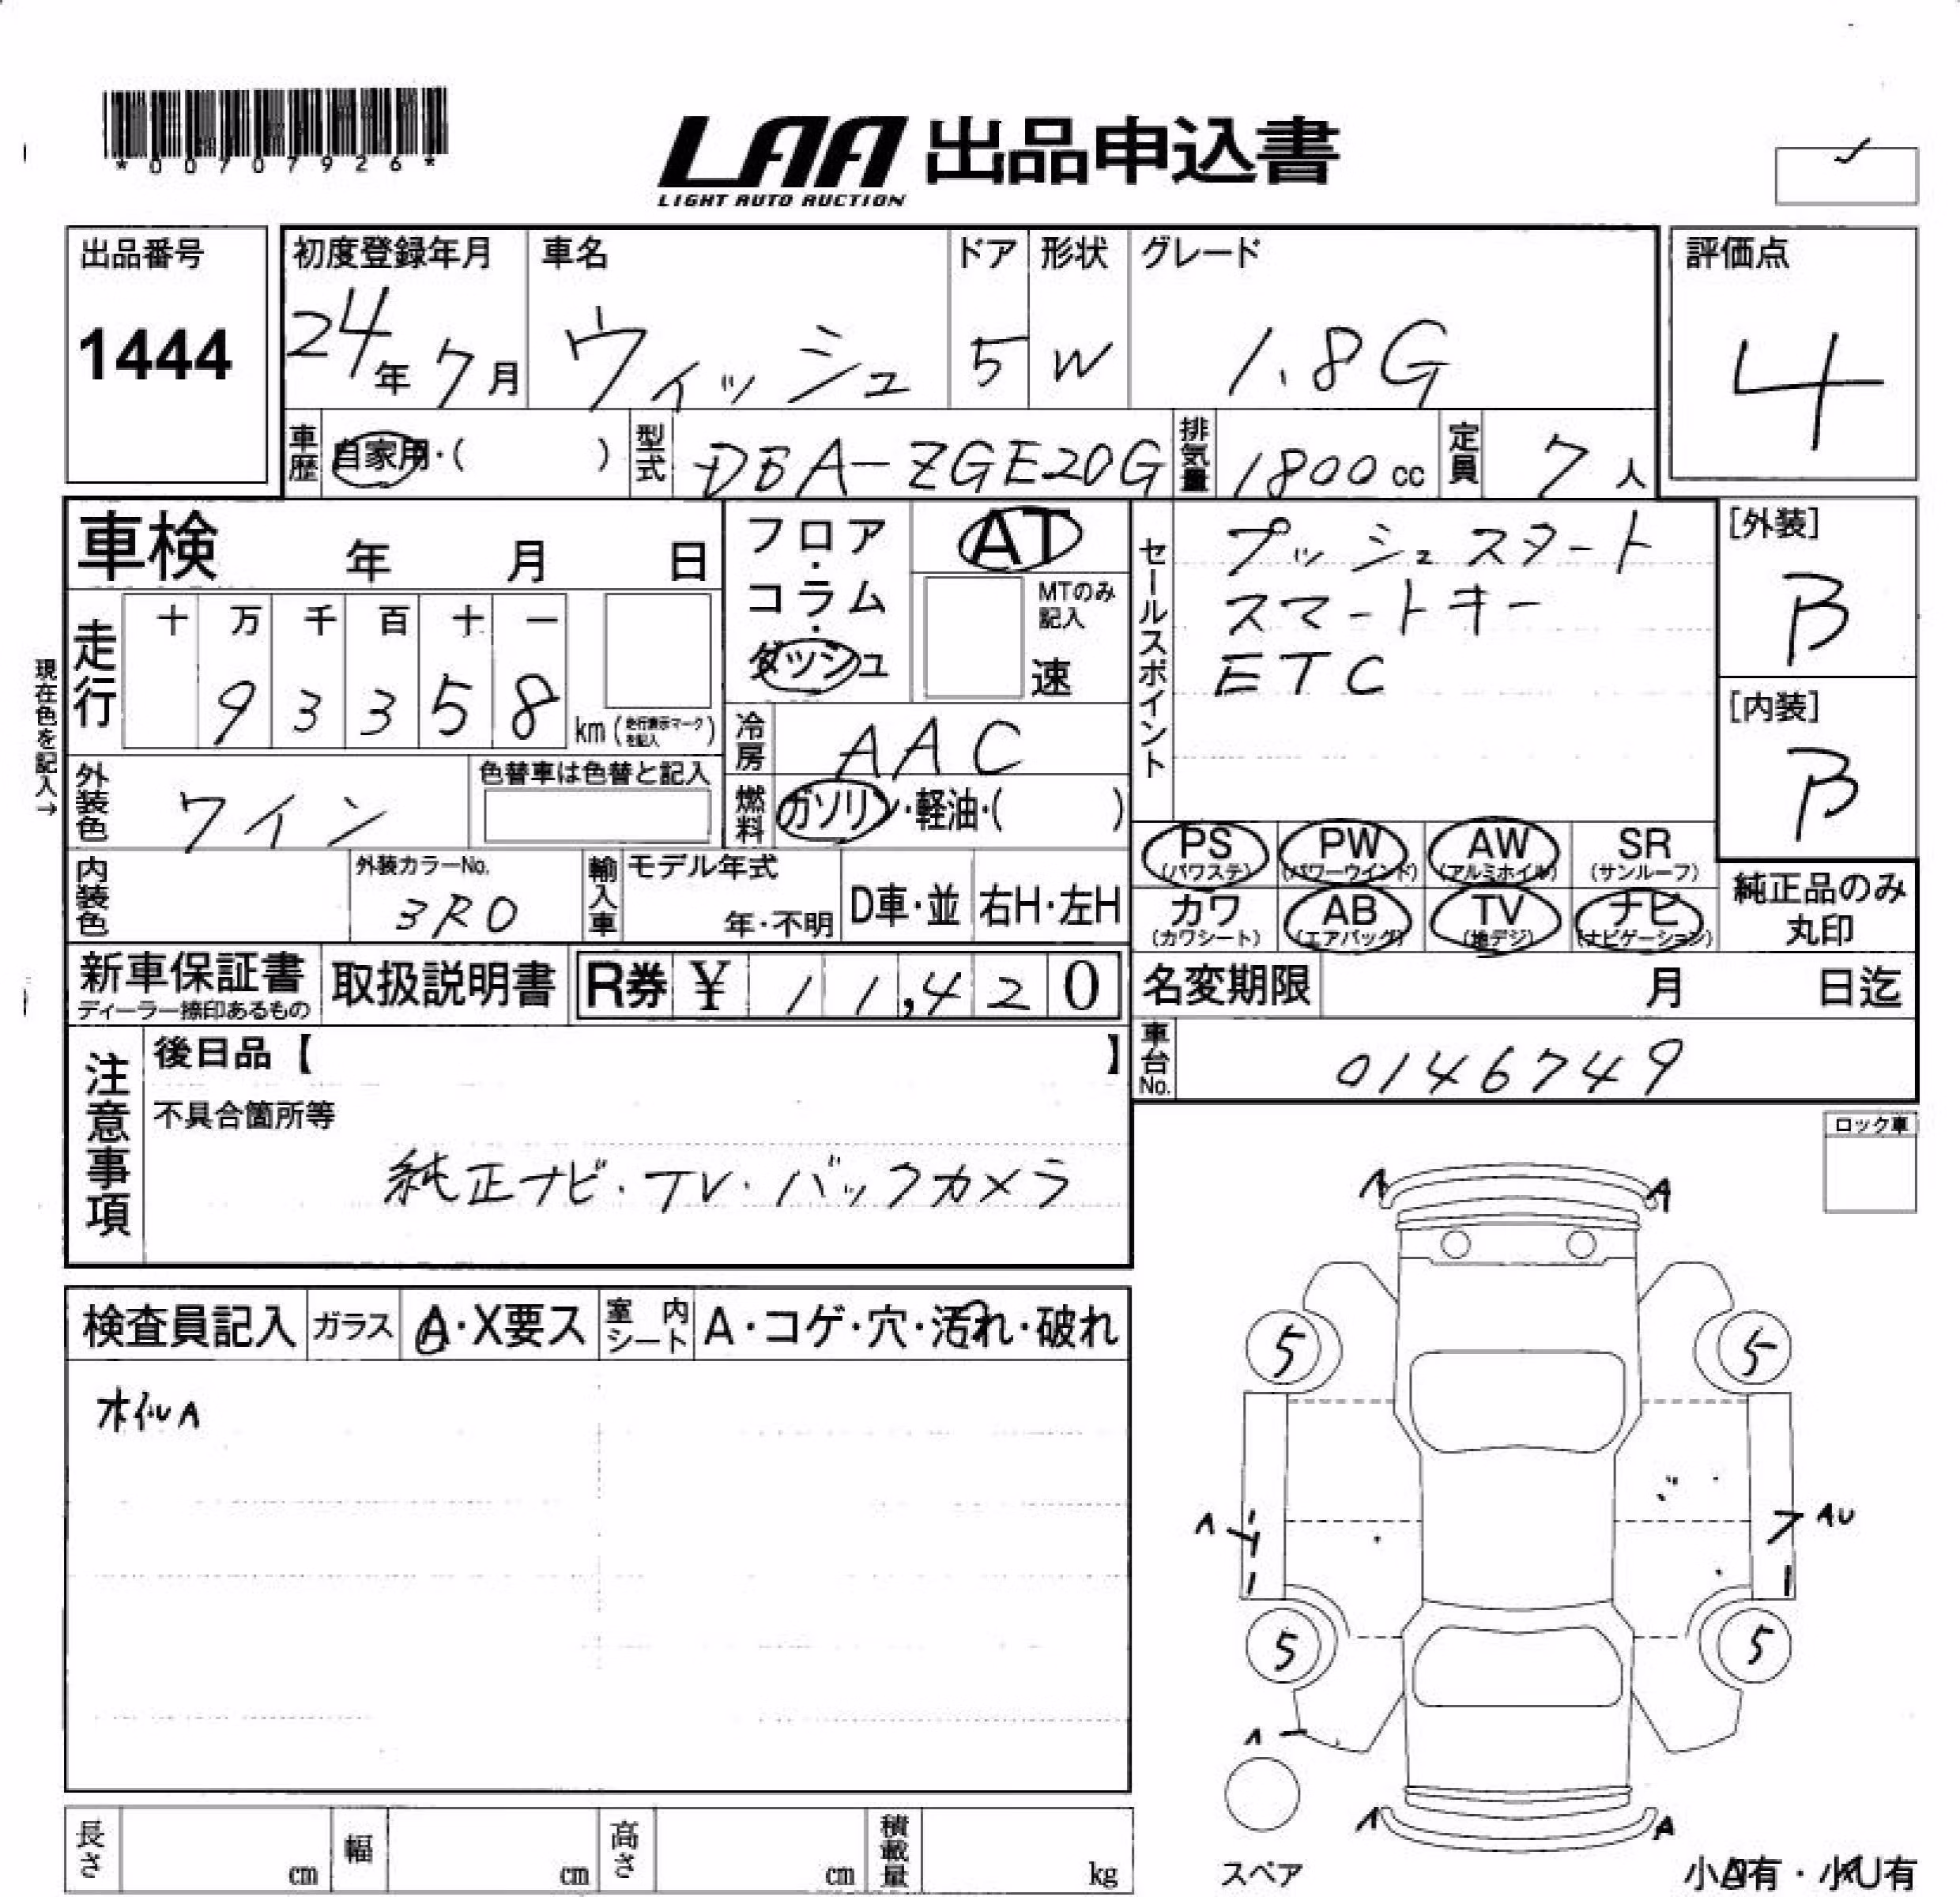 *00707926*
LAA 出品申込書
LIGHT AUTO AUCTION
出品番号
1444
初度登録年月
24年 7月
車名
ウィッシュ
ドア
5
形状
W
グレード
1.8G
評価点
4
車歴 自家用・( )
型式 DBA-ZGE20G
排気量 1800cc
定員 7人
車検 年 月 日
フロア・コラム・ダッシュ
AT
MTのみ記入
速
セールスポイント
プッシュスタート
スマートキー
ETC
[外装]
B
[内装]
B
現在色を記入→
走行
十 万 千 百 十 一
9 3 3 5 8
km(走行表示マークを記入)
冷房 AAC
外装色 ワイン
色替車は色替と記入
燃料 ガソリン・軽油・( )
PS (パワステ)
PW (パワーウインド)
AW (アルミホイル)
SR (サンルーフ)
カワ (カワシート)
AB (エアバッグ)
TV (地デジ)
ナビ (ナビゲーション)
純正品のみ丸印
内装色
外装カラーNo.
3R0
輸入車
モデル年式
年・不明
D車・並
右H・左H
新車保証書
ディーラー捺印あるもの
取扱説明書
R券 ¥ 11,420
名変期限 月 日迄
車台No. 0146749
注意事項
後日品【 】
不具合箇所等
純正ナビ・TV・バックカメラ
ロック車
検査員記入
ガラス A・X要ス
室内シート A・コゲ・穴・汚れ・破れ
ホイルA
A A
5 5
A AU
5 5
A
A A
スペア
小A有・小U有
長さ cm
幅 cm
高さ cm
積載量 kg